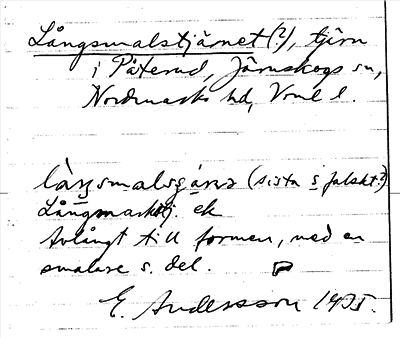 Långsmalstjärnet (?), tjärn
i Päterud, Järnskogs sn,
Nordmarks hd, Vrml l.
làŋsmalsçæ̀ṇə (sista s falskt?)
Långmarkstj. ek
Avlångt till formen, med en
smalare s. del.
E. Andersson 1935.